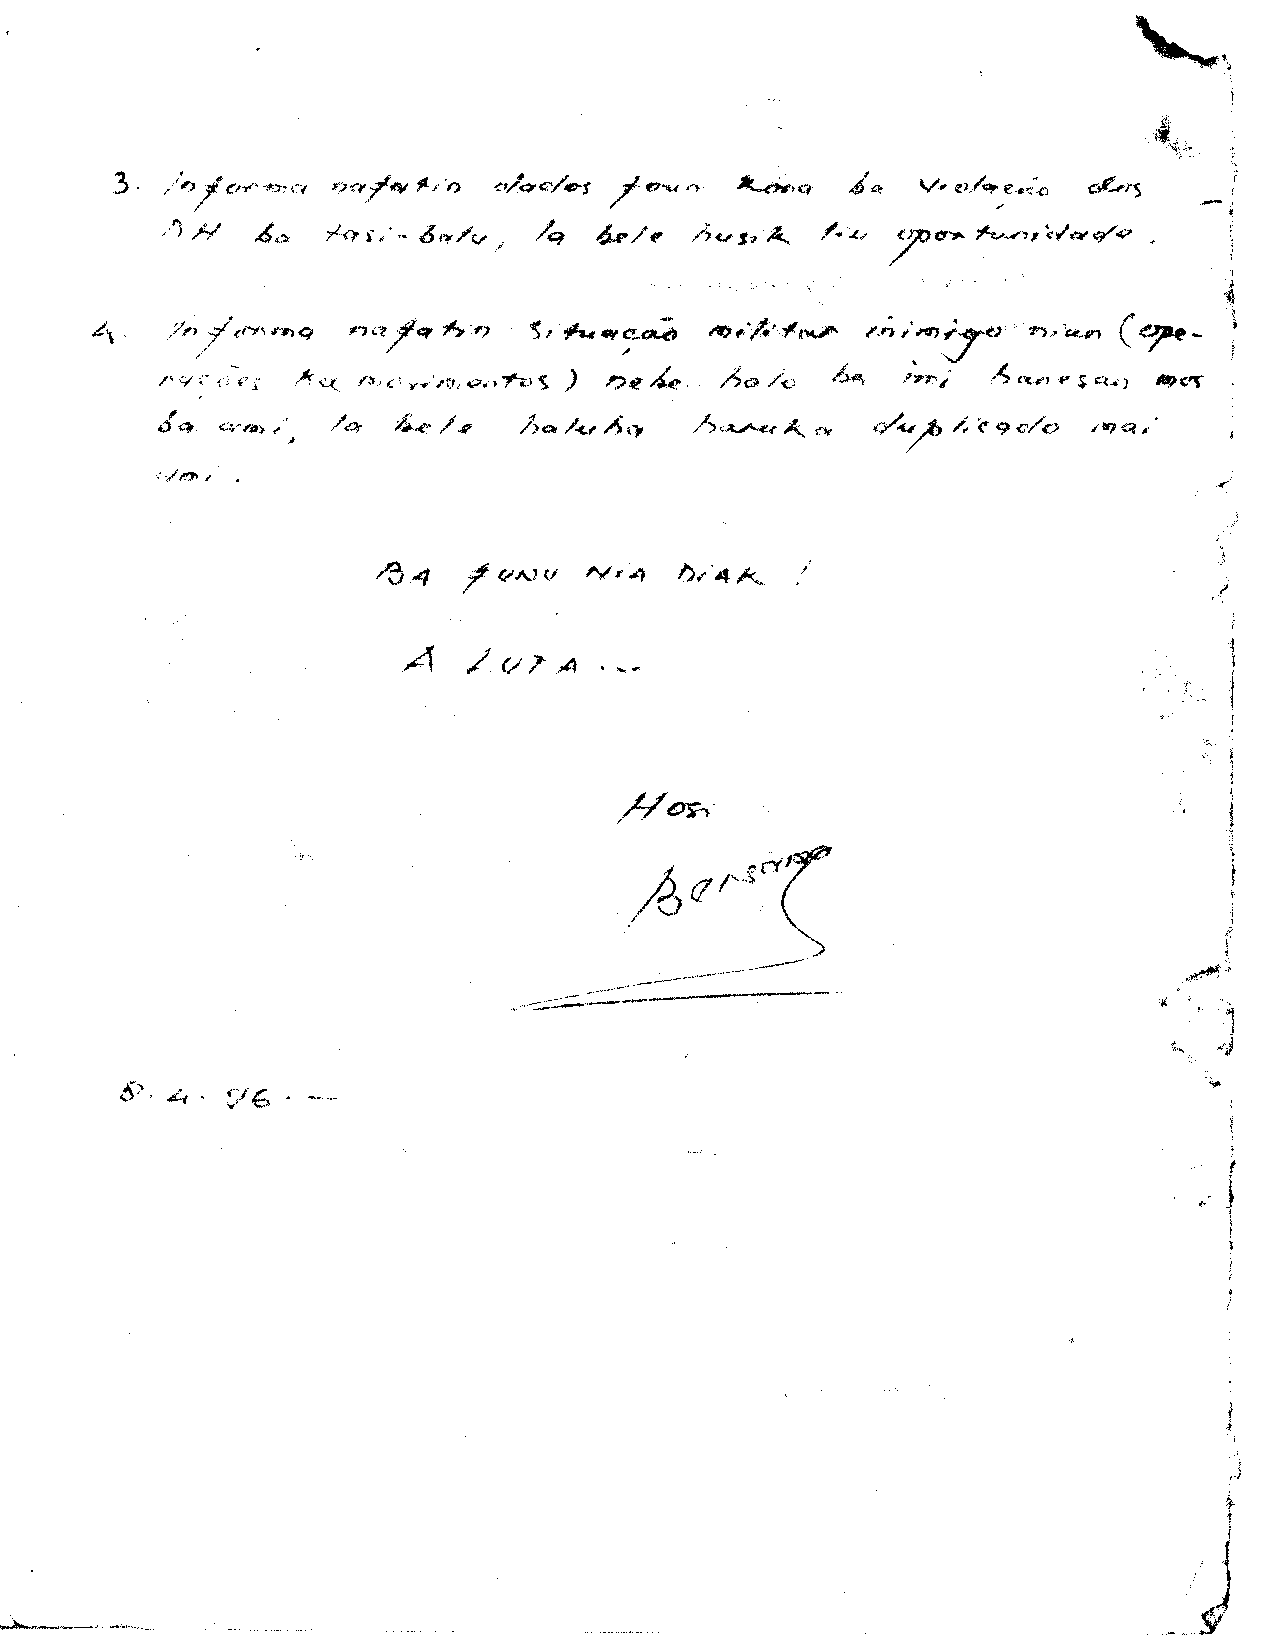 3. Informa nafatin dados foun kona ba violação dos
DH ba tasi-balu, la bele husik liu oportunidade.
4. Informa nafatin situação militar inimigo nian (ope-
rações ka movimentos) nebe halo ba imi hanesan mos
ba ami, la bele haluha haruka duplicado mai
BA FUNU NIA DIAK !
A LUTA...
Hosi
8.4.96.—